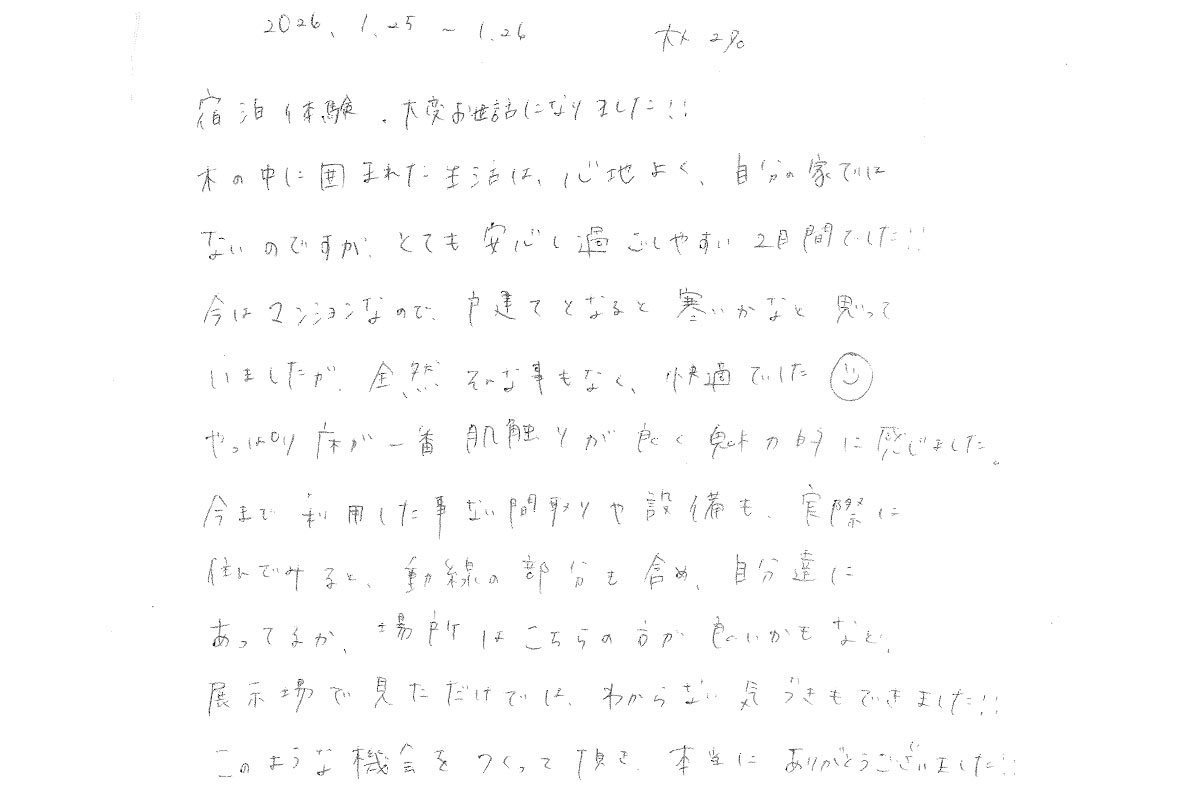 2026、1.25 ~ 1.26
宿泊体験、大変お世話になりました!!
木の中に囲まれた生活は、心地よく、自分の家では
ないのですが、とても安心し過ごしやすい2日間でした!!
今はマンションなので、戸建てとなると寒いかなと思って
いましたが、全然そんな事もなく、快適でした
やっぱり床が一番肌触りが良く魅力的に感じました。
今まで利用した事ない間取りや設備も、実際に
住んでみると、動線の部分も含め、自分達に
あってるか、場所はこちらの方が良いかもなど、
展示場で見ただけでは、わからない気づきもできました!!
このような機会をつくって頂き、本当にありがとうございました!!